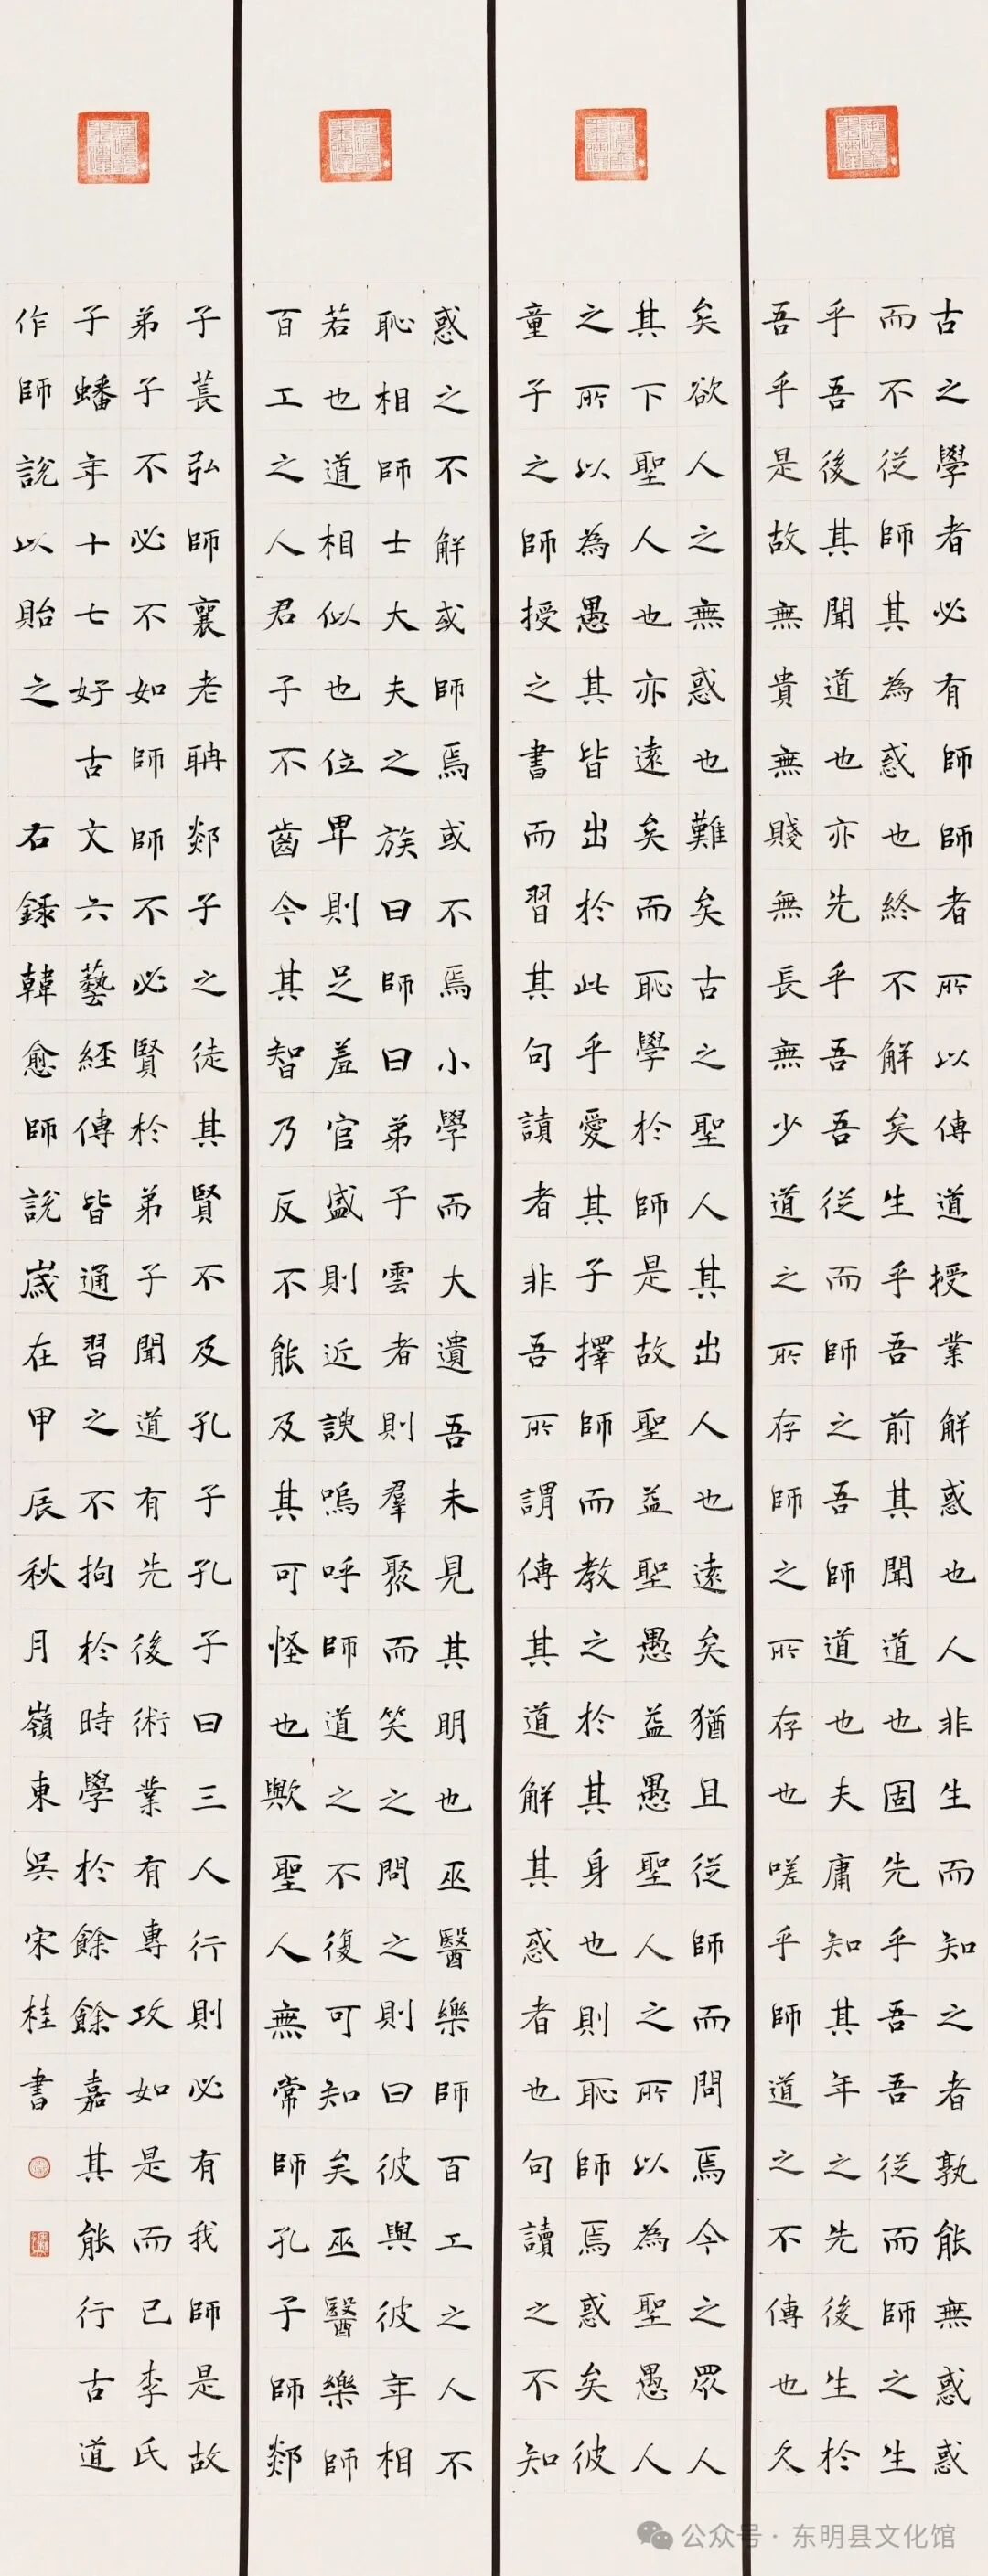 古之學者必有師師者所以傳道授業解惑也人非生而知之者孰能無惑惑
而不從師其為惑也終不解矣生乎吾前其聞道也固先乎吾吾從而師之生
乎吾後其聞道也亦先乎吾吾從而師之吾師道也夫庸知其年之先後生於
吾乎是故無貴無賤無長無少道之所存師之所存也嗟乎師道之不傳也久
矣欲人之無惑也難矣古之聖人其出人也遠矣猶且從師而問焉今之眾人
其下聖人也亦遠矣而恥學於師是故聖益聖愚益愚聖人之所以為聖愚人
之所以為愚其皆出於此乎愛其子擇師而教之於其身也則恥師焉惑矣彼
童子之師授之書而習其句讀者非吾所謂傳其道解其惑者也句讀之不知
惑之不解或師焉或不焉小學而大遺吾未見其明也巫醫樂師百工之人不
恥相師士大夫之族曰師曰弟子雲者則羣聚而笑之問之則曰彼與彼年相
若也道相似也位卑則足羞官盛則近諛嗚呼師道之不復可知矣巫醫樂師
百工之人君子不齒今其智乃反不能及其可怪也歟聖人無常師孔子師郯
子萇弘師襄老聃郯子之徒其賢不及孔子孔子曰三人行則必有我師是故
弟子不必不如師師不必賢於弟子聞道有先後術業有專攻如是而已李氏
子蟠年十七好古文六藝經傳皆通習之不拘於時學於餘餘嘉其能行古道
作師說以貽之 右錄韓愈師說歲在甲辰秋月嶺東吳宋桂書
公众号·东明县文化馆